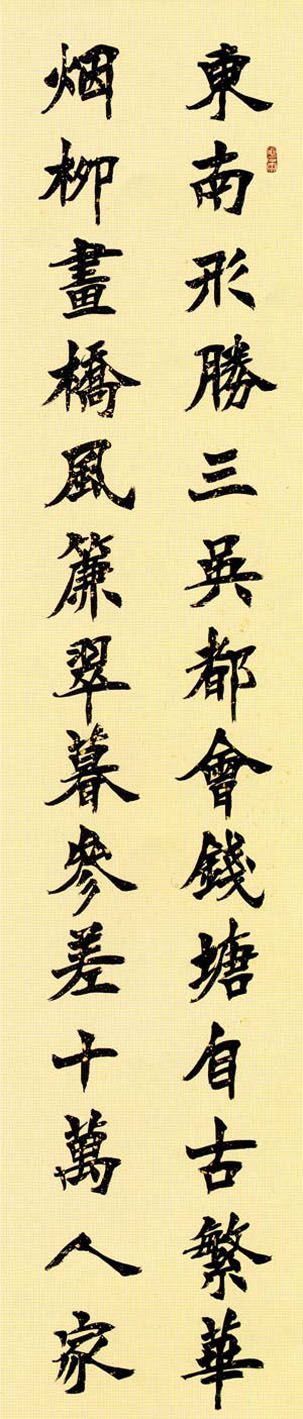 東南形勝三吳都會錢塘自古繁華
烟柳畫橋風簾翠暮參差十萬人家